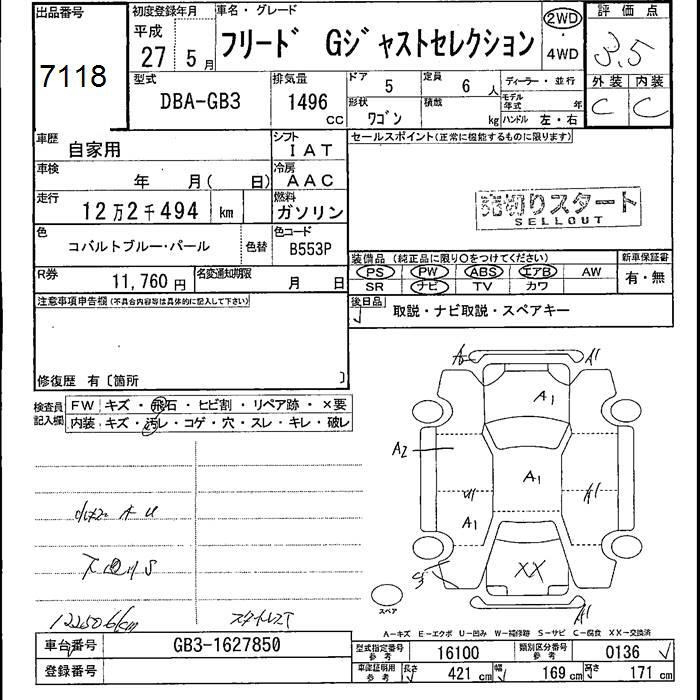 出品番号
7118
初度登録年月
平成
27 5月
車名・グレード
フリード Gジャストセレクション
2WD
・
4WD
評価点
3.5
外装 内装
C C
型式
DBA-GB3
排気量
1496
CC
ドア 5
定員 6 人
ディーラー・並行
形状 ワゴン
積載 kg
モデル年式 年
ハンドル 左・右
車歴
自家用
シフト
IAT
セールスポイント(正常に機能するものに限ります)
車検
年 月( 日)
冷房
AAC
走行
12万2千494 km
燃料
ガソリン
売切りスタート
SELLOUT
色
コバルトブルー・パール
色替
色コード
B553P
装備品(純正品に限り○をつけてください)
新車保証書
PS PW ABS エアB AW
SR ナビ TV カワ
有・無
R券
11,760円
名変通知期限
月 日
後日品
取説・ナビ取説・スペアキー
注意事項申告欄(不具合内容等は具体的に記入して下さい)
修復歴 有〔箇所 〕
検査員記入欄
FW キズ・飛石・ヒビ割・リペア跡・×要
内装 キズ・汚レ・コゲ・穴・スレ・キレ・破レ
A A1
A1
A2
A1
A1
A1
S
XX
A1
A U
S
122506km
スペア
A−キズ E−エクボ U−凹み W−補修跡 S−サビ C−腐食 XX−交換済
車台番号
GB3-1627850
登録番号
型式指定番号参考
16100
類別区分番号参考
0136
車庫証明用参考
長さ 421 cm
幅 169 cm
高さ 171 cm